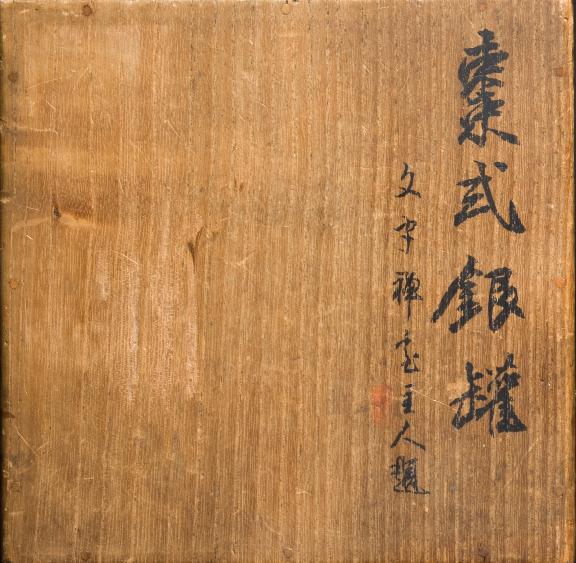 棗式銀罐
文字禅室主人題